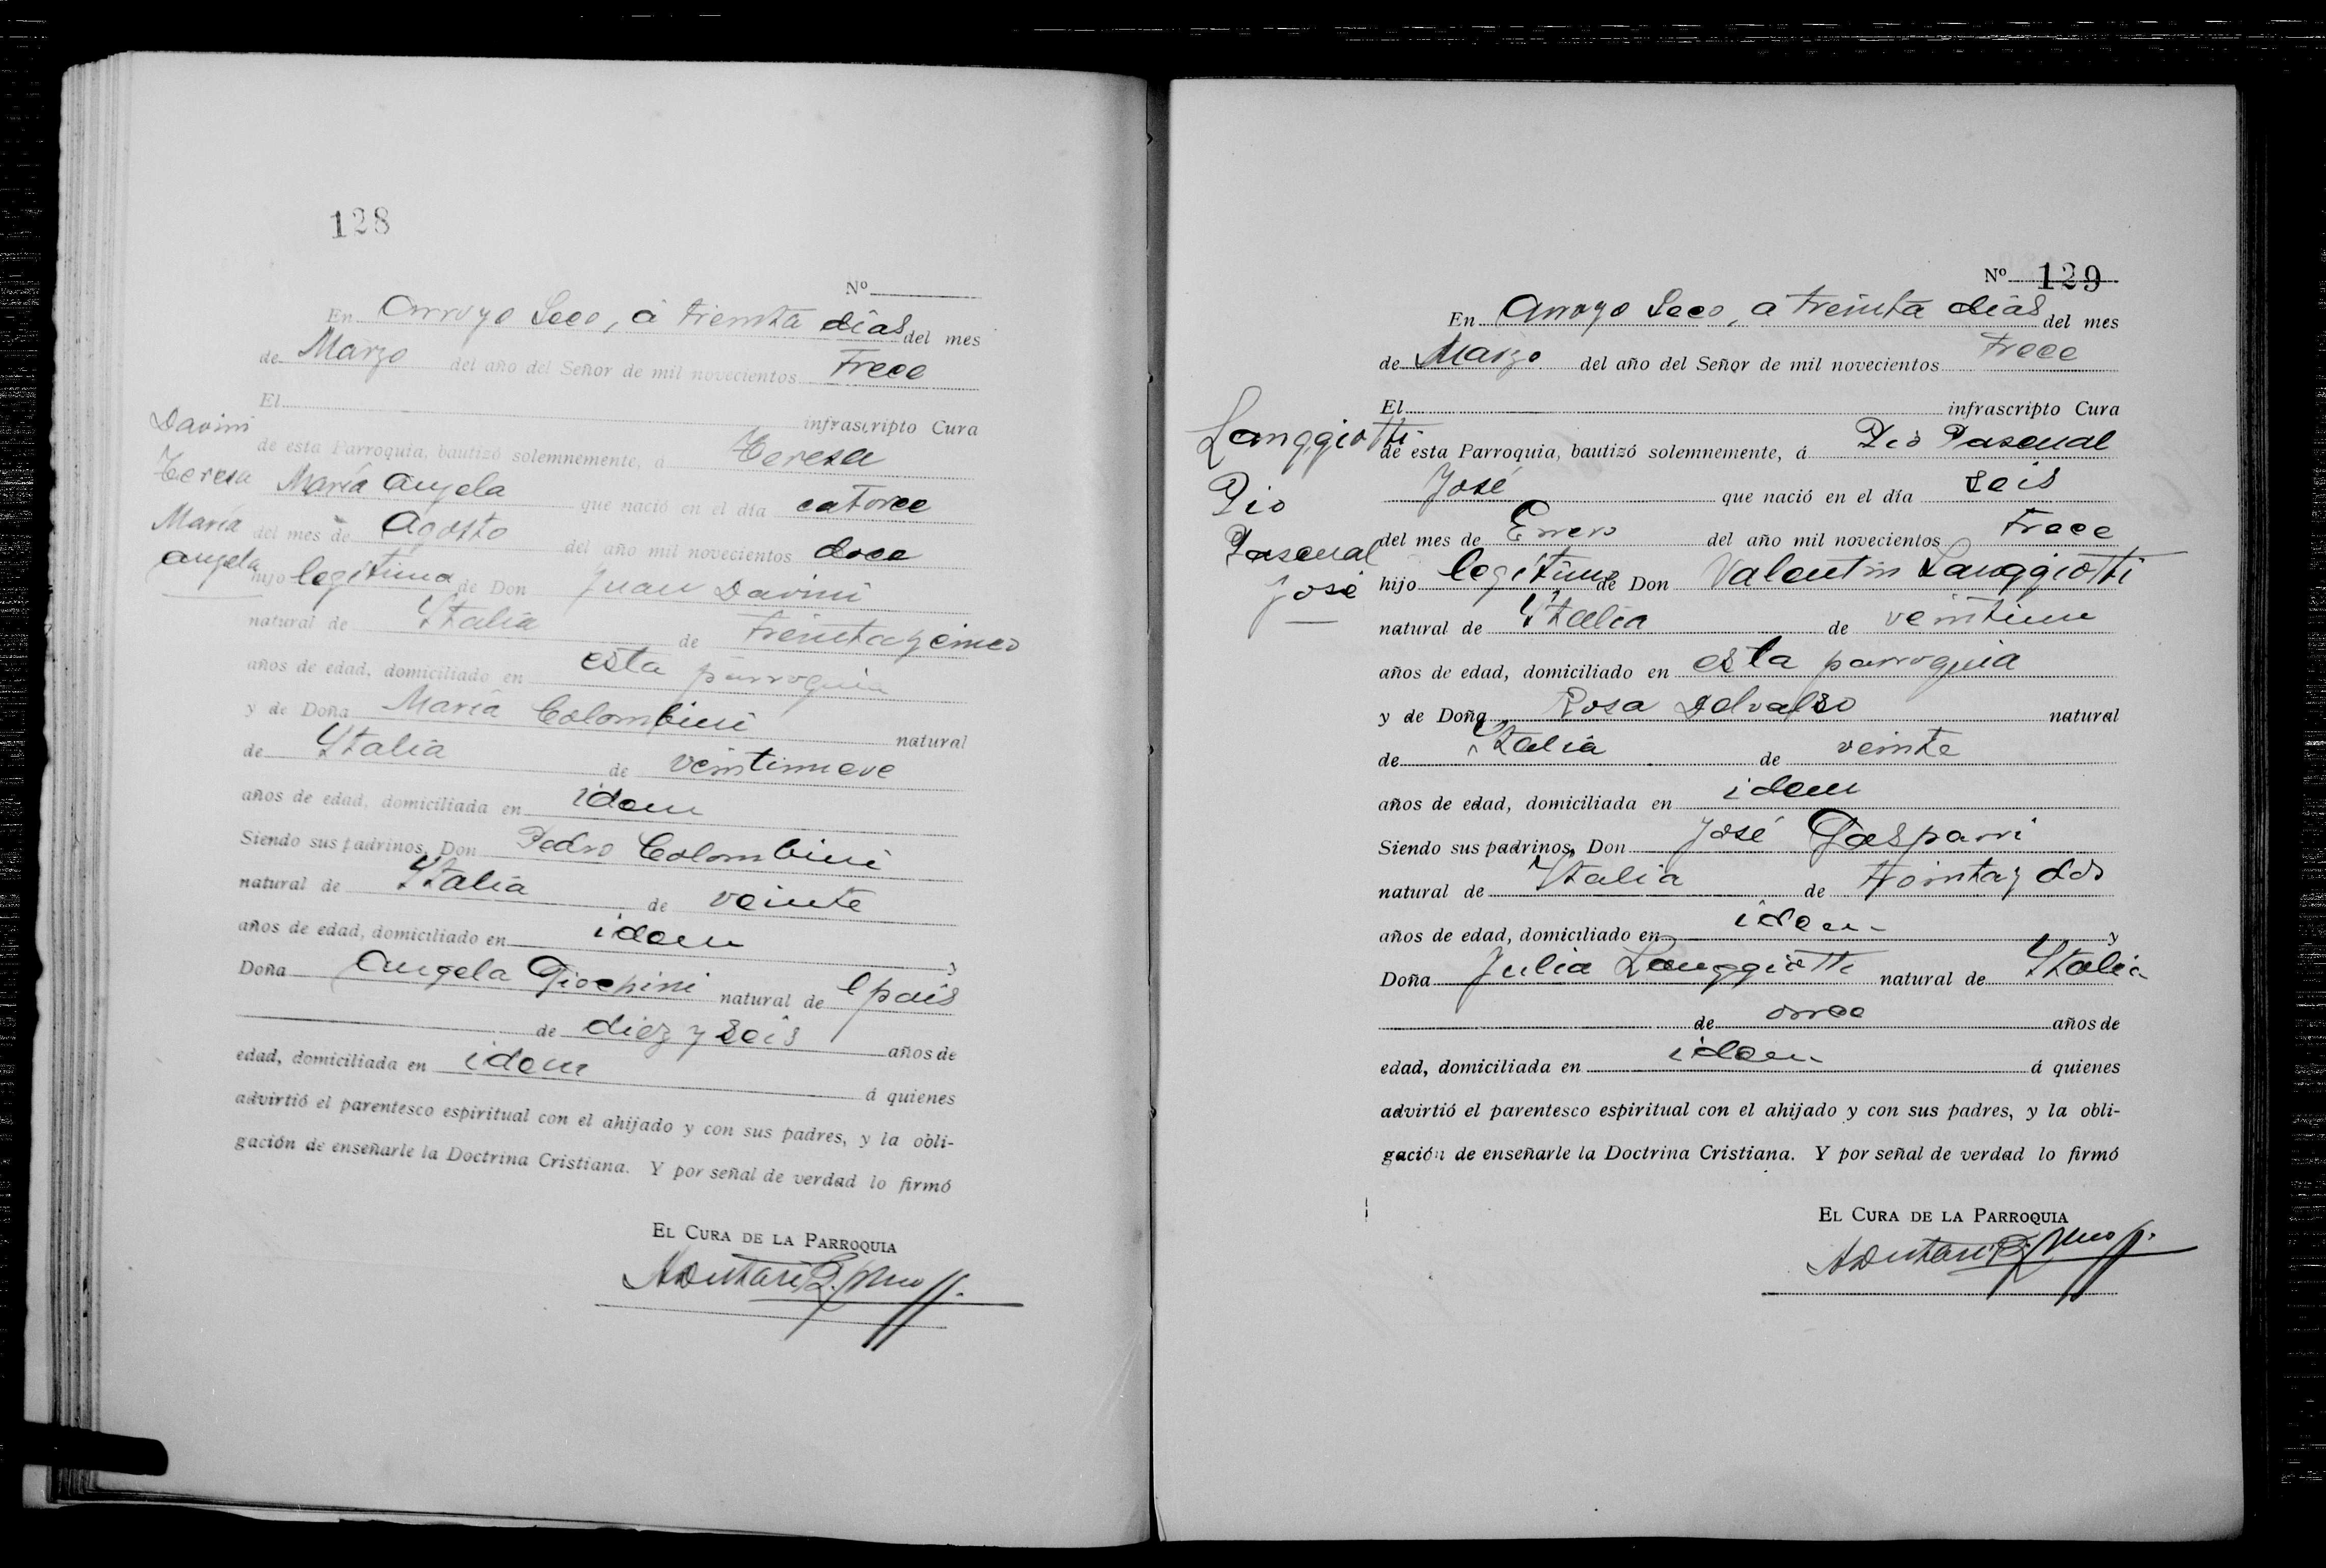 128
Nº
En Arroyo Seco, á treinta días del mes
de Marzo del año del Señor de mil novecientos trece
El infrascripto Cura
Davini
de esta Parroquia, bautizó solemnemente, á Teresa
Teresa
María Angela que nació en el día catorce
María
del mes de Agosto del año mil novecientos doce
Angela
hijo legítima de Don Juan Davini
natural de Italia de treinta y cinco
años de edad, domiciliado en esta parroquia
y de Doña María Colombini natural
de Italia de veintinueve
años de edad, domiciliada en idem
Siendo sus padrinos, Don Pedro Colombini
natural de Italia de veinte
años de edad, domiciliado en idem y
Doña Angela Giochini natural de l pais
de diez y seis años de
edad, domiciliada en idem á quienes
advirtió el parentesco espiritual con el ahijado y con sus padres, y la obli-
gación de enseñarle la Doctrina Cristiana. Y por señal de verdad lo firmó
EL CURA DE LA PARROQUIA
Nº 129
En Arroyo Seco, a treinta días del mes
de Marzo del año del Señor de mil novecientos trece
El infrascripto Cura
Langgiotti
de esta Parroquia, bautizó solemnemente, á Pio Pascual
Pio
José que nació en el día seis
Pascual
del mes de Enero del año mil novecientos trece
José
hijo legítimo de Don Valentin Langgiotti
natural de Italia de veintiun
años de edad, domiciliado en esta parroquia
y de Doña Rosa Delvalso natural
de Italia de veinte
años de edad, domiciliada en idem
Siendo sus padrinos, Don José Gasparri
natural de Italia de treinta y dos
años de edad, domiciliado en idem y
Doña Julia Langgiotti natural de Italia
de once años de
edad, domiciliada en idem á quienes
advirtió el parentesco espiritual con el ahijado y con sus padres, y la obli-
gación de enseñarle la Doctrina Cristiana. Y por señal de verdad lo firmó
EL CURA DE LA PARROQUIA